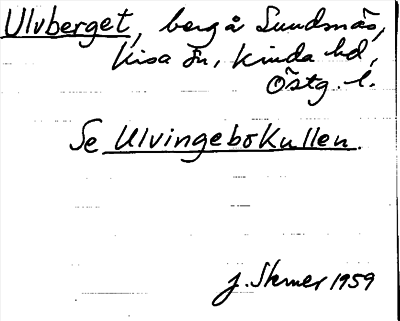 Ulvberget, berg å Sundsnäs,
Kisa sn, Kinda hd,
Östg. l.
Se Ulvingebokullen.
J. Sterner 1959